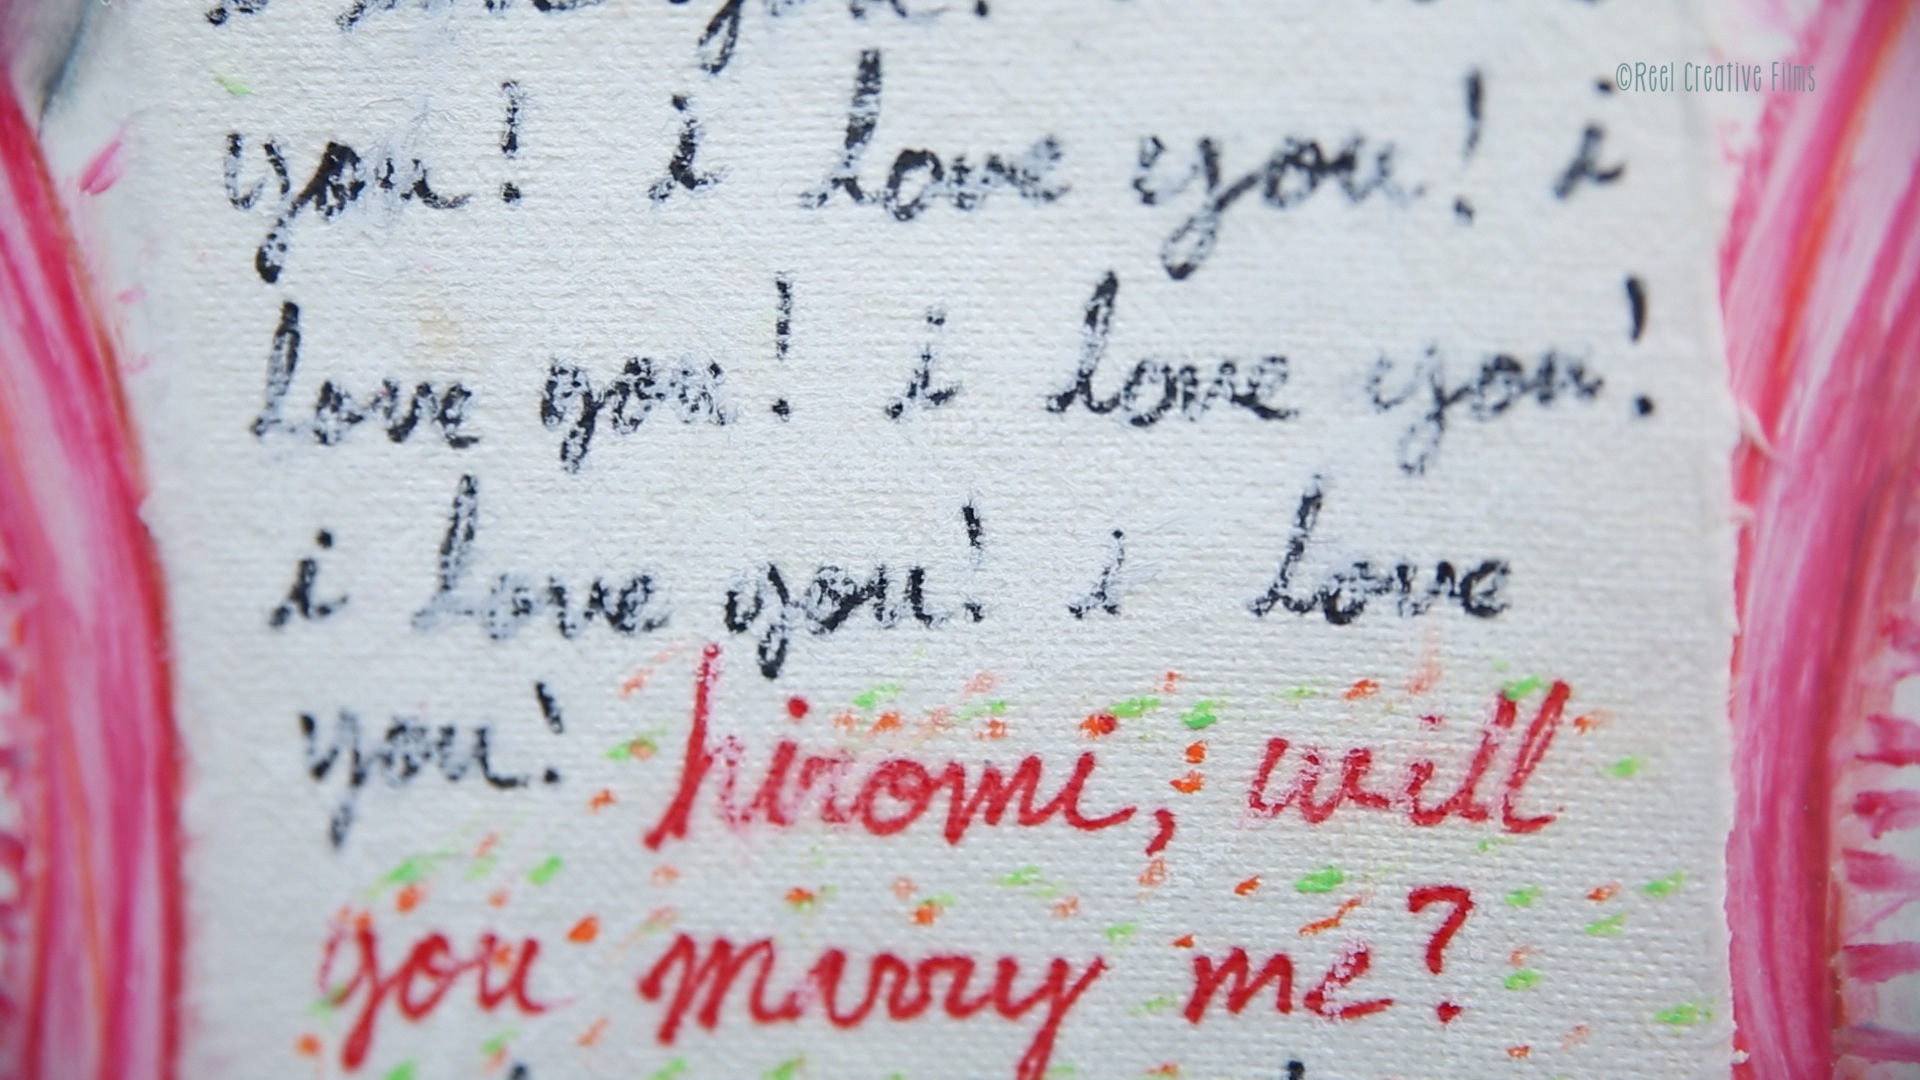 you!
©Reel Creative Films
you! i love you! i
love you! i love you!
i love you! i love
you! hiromi, will
you marry me?